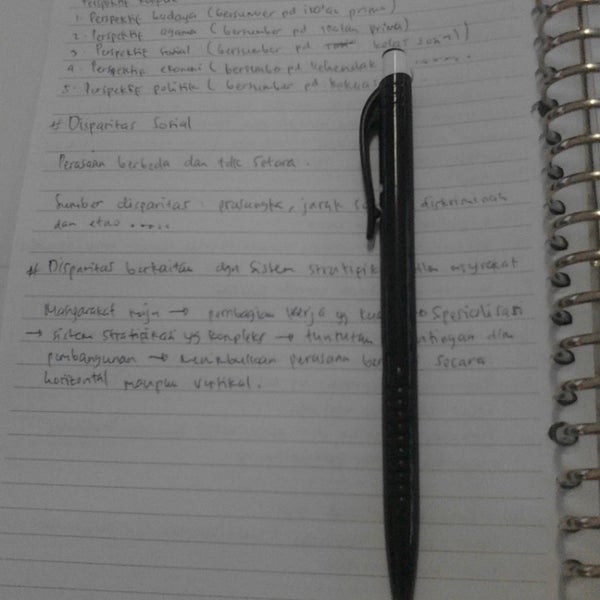 Perspektif
1. Perspektif budaya (bersumber pd
2. Perspektif agama (bersumber pd
3. Perspektif sosial (bersumber pd kelas sosial)
4. Perspektif ekonomi (bersumber pd kehendak .......
5. Perspektif politik (bersumber pd
# Disparitas Sosial
Perasaan berbeda dan tdk setara.
Sumber disparitas : prasangka, jarak diskriminasi
dan etno ......
# Disparitas berkaitan dgn sistem
Masyarakat maju → pembagian kerja yg Spesialisasi
→ sistem stratifikasi yg kompleks → tuntutan dlm
pembangunan → menimbulkan perasaan secara
horizontal maupun vertikal.